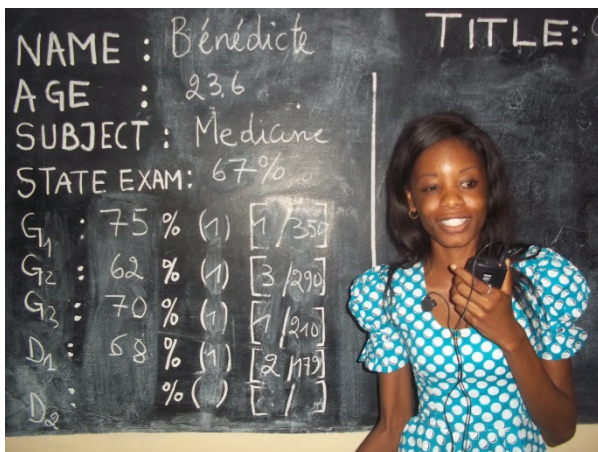 NAME : Bénédicte
AGE : 23,6
SUBJECT : Medicine
STATE EXAM: 67%
G1 : 75 % (1) [1/350]
G2 : 62 % (1) [3/290]
G3 : 70 % (1) [1/210]
D1 : 68 % (1) [2/179]
D2 : % ( ) [ / ]
TITLE: